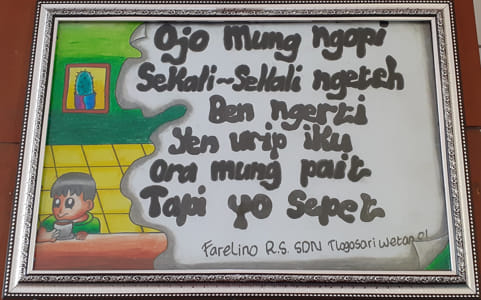 Ojo Mung ngopi
Sekali~Sekali ngeteh
Ben ngerti
Yen urip iku
Ora mung pait
Tapi yo Sepet
Farelino R.S. SDN Tlogosari Wetan 01